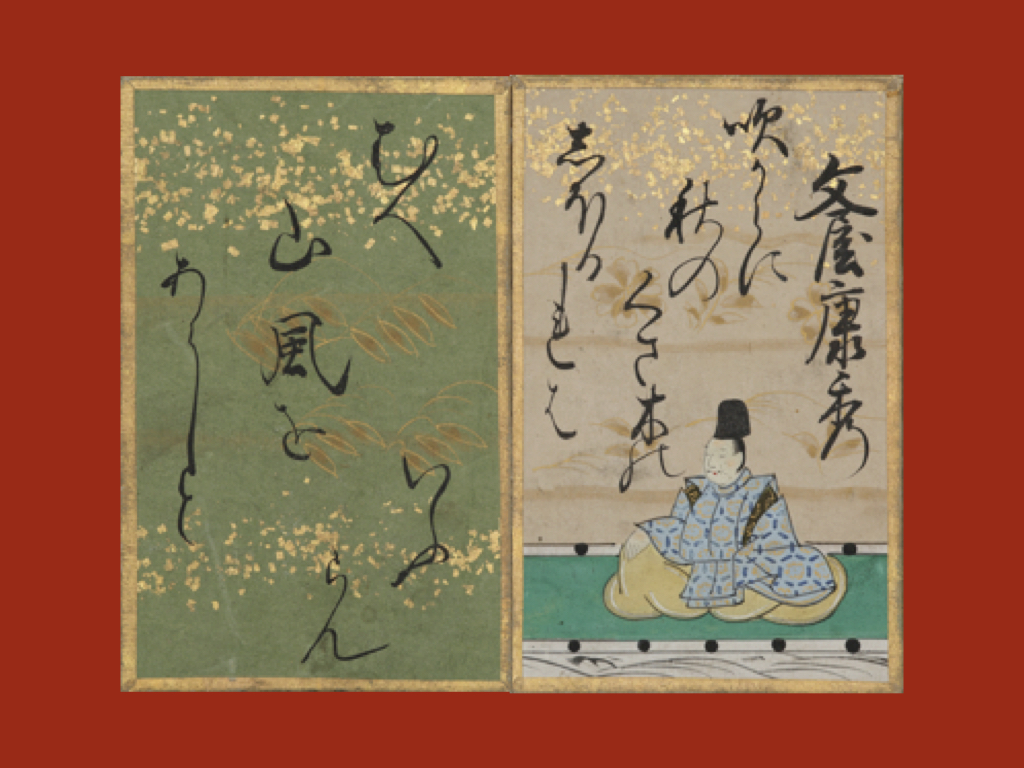 文屋康秀
吹からに
秋の
くさ木の
志ほる
れは
むへ
山風を
あらしと
いふ
らん